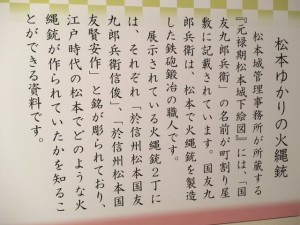 松本ゆかりの火縄銃
松本城管理事務所が所蔵する
『元禄期松本城下絵図』には、「国
友九郎兵衛」の名前が町割り屋
敷に記載されています。国友九
郎兵衛は、松本で火縄銃を製造
した鉄砲鍛冶の職人です。
展示されている火縄銃2丁に
は、それぞれ「於信州松本国友
九郎兵衛信俊」、「於信州松本国
友賢安作」と銘が彫られており、
江戸時代の松本でどのような火
縄銃が作られていたかを知るこ
とができる資料です。